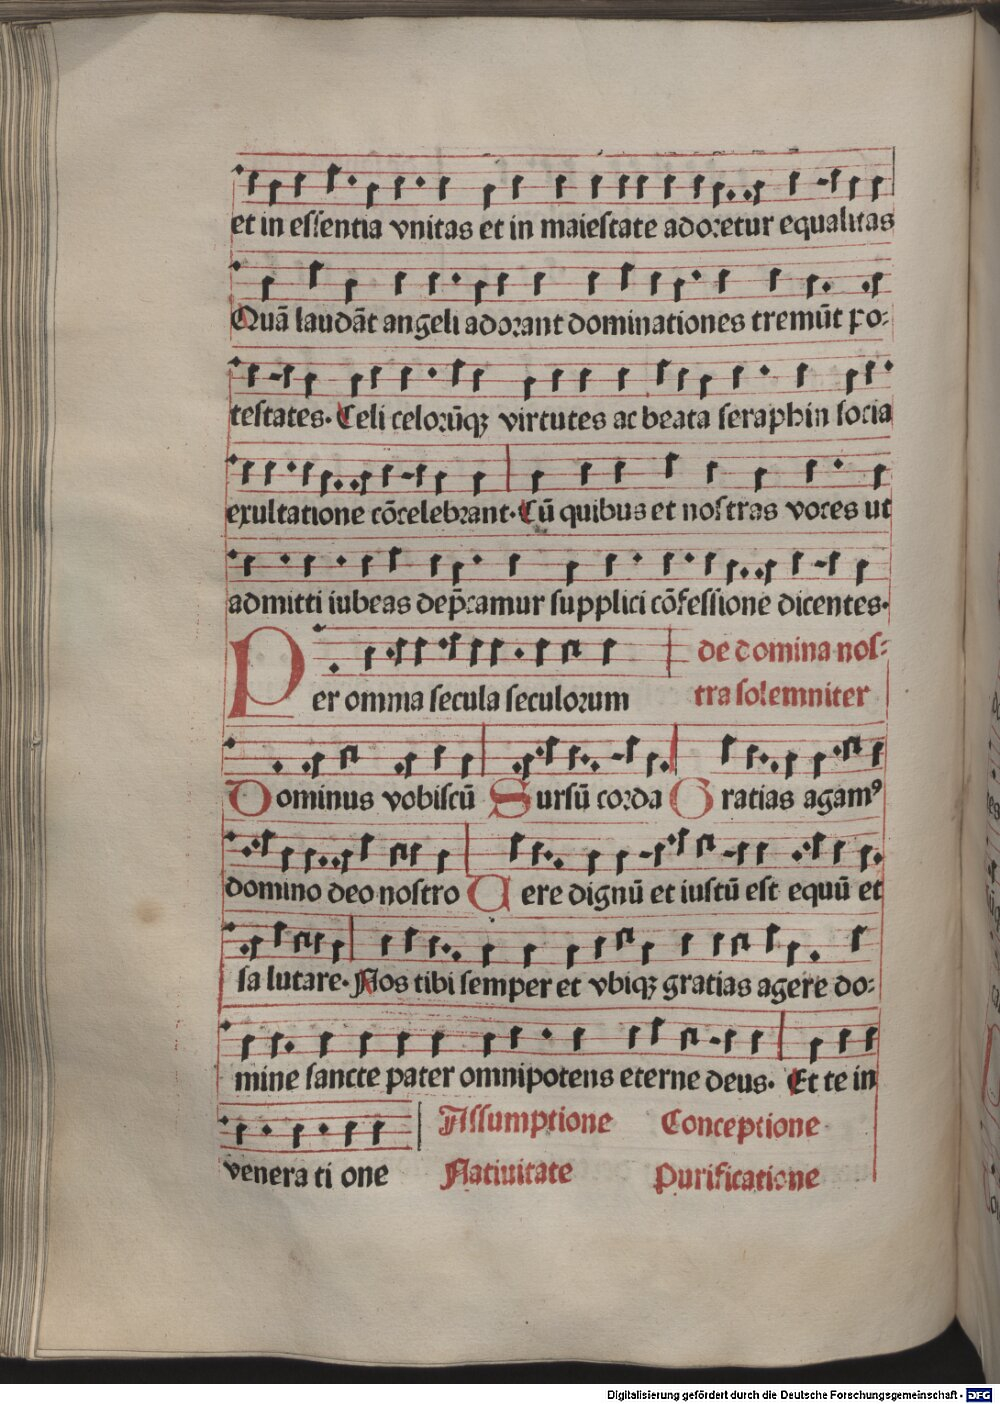 et in eſſentia vnitas et in maieſtate adoꝛetur equalitas
Quā laudāt angeli adoꝛant dominationes tremūt po⸗
teſtates. Celi celoꝛūqꝫ virtutes ac beata ſeraphin ſocia
exultatione cōcelebꝛant. Cū quibus et noſtras voces ut
admitti iubeas dep̄camur ſupplici cōfeſſione dicentes.
de domina noſ⸗
Per omnia ſecula ſeculoꝛum
tra ſolemniter
Dominus vobiſcū Surſū coꝛda Gratias agamꝰ
domino deo noſtro Uere dignū et iuſtū eſt equū et
ſa lutare. Nos tibi ſemper et vbiqꝫ gratias agere do⸗
mine ſancte pater omnipotens eterne deus. Et te in
Aſſumptione Conceptione
venera ti one
Natiuitate Purificatione
Digitalisierung gefördert durch die Deutsche Forschungsgemeinschaft - DFG